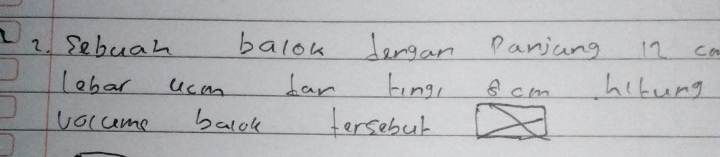 2. Sebuah balok dengan Panjang 12 cm
lebar 4cm dan tingi 8 cm hitung
volume balok tersebut